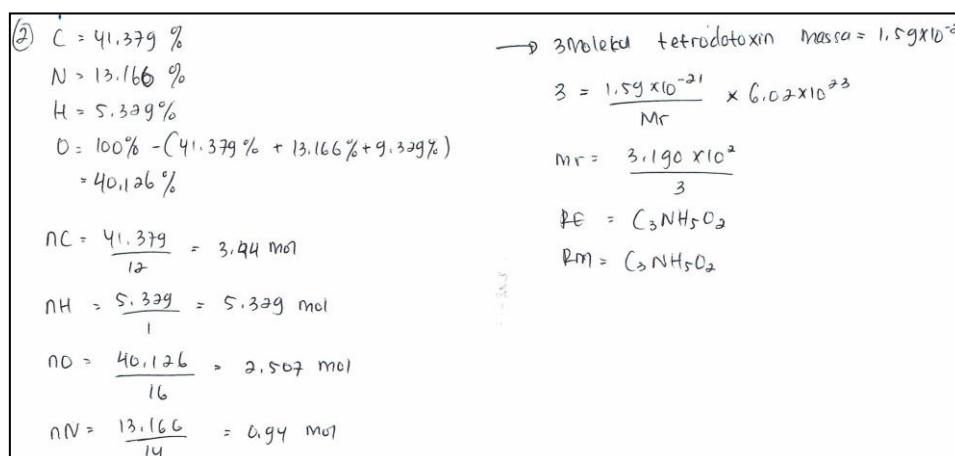 ② C = 41.379 %
N = 13.166 %
H = 5.329 %
O = 100% - (41.379% + 13.166% + 9.329%)
= 40,126 %
nC = 41.379 / 12 = 3.44 mol
nH = 5.329 / 1 = 5.329 mol
nO = 40,126 / 16 = 2.507 mol
nN = 13.166 / 14 = 0.94 mol
→ 3 Molekul tetrodotoxin massa = 1.59x10
3 = 1.59 x10⁻²¹ / Mr x 6.02 x10²³
Mr = 3.190 x10² / 3
RE = C₃NH₅O₂
RM = C₃NH₅O₂